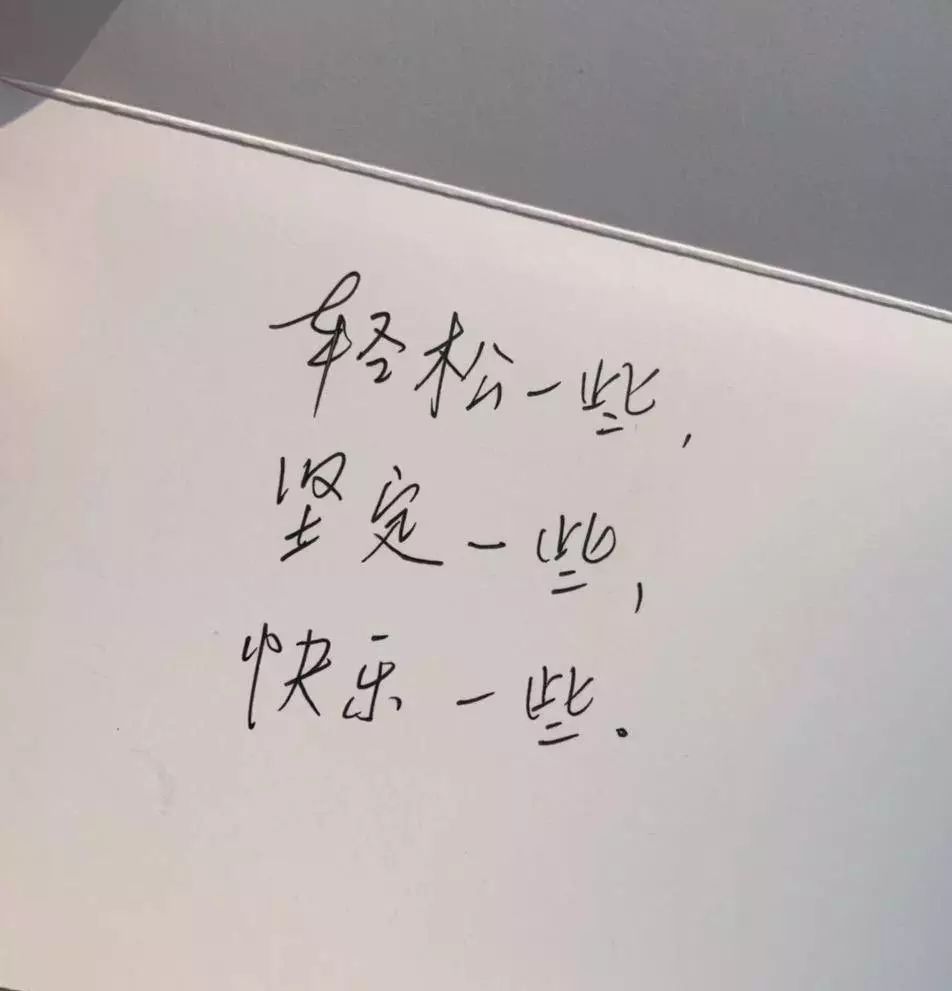 轻松一些,
坚定一些,
快乐一些。